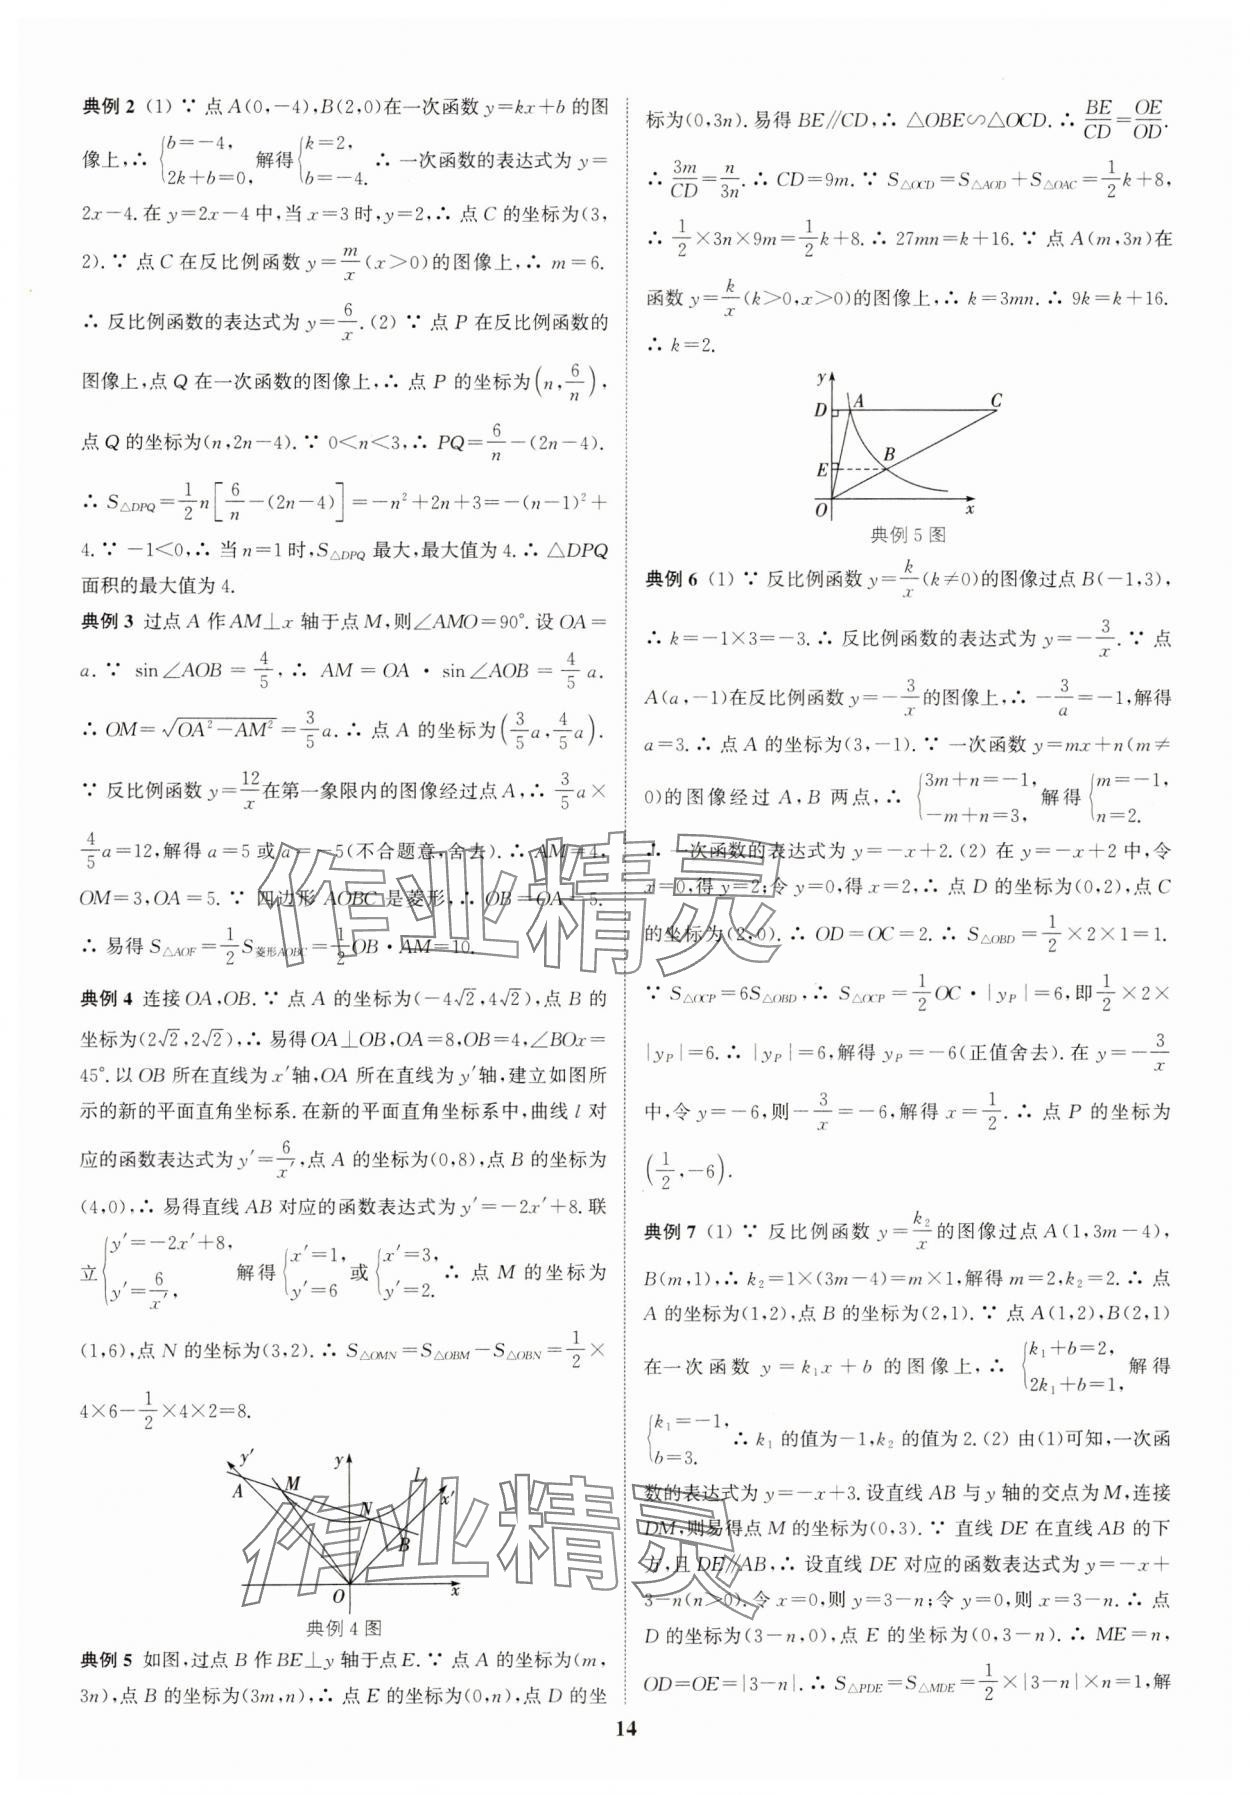 典例2 (1) ∵ 点A(0,-4),B(2,0)在一次函数 y=kx+b 的图
像上,∴ {b=-4, 2k+b=0, 解得{k=2, b=-4. ∴ 一次函数的表达式为 y=
2x-4. 在 y=2x-4 中,当 x=3 时,y=2,∴ 点 C 的坐标为(3,
2). ∵ 点 C 在反比例函数 y=m/x(x>0)的图像上,∴ m=6.
∴ 反比例函数的表达式为 y=6/x. (2) ∵ 点 P 在反比例函数的
图像上,点 Q 在一次函数的图像上,∴ 点 P 的坐标为(n,6/n),
点 Q 的坐标为(n,2n-4). ∵ 0<n<3,∴ PQ=6/n-(2n-4).
∴ S△DPQ=1/2 n[6/n-(2n-4)]=-n²+2n+3=-(n-1)²+
4. ∵ -1<0,∴ 当 n=1 时,S△DPQ 最大,最大值为 4. ∴ △DPQ
面积的最大值为 4.
典例3 过点 A 作 AM⊥x 轴于点 M,则∠AMO=90°. 设 OA=
a. ∵ sin∠AOB=4/5,∴ AM=OA·sin∠AOB=4/5 a.
∴ OM=√(OA²-AM²)=3/5 a. ∴ 点 A 的坐标为(3/5 a,4/5 a).
∵ 反比例函数 y=12/x 在第一象限内的图像经过点 A,∴ 3/5 a×
4/5 a=12,解得 a=5 或 a=-5(不合题意,舍去). ∴ AM=4,
OM=3,OA=5. ∵ 四边形 AOBC 是菱形,∴ OB=OA=5.
∴ 易得 S△AOF=1/2 S菱形AOBC=1/2 OB·AM=10.
典例4 连接 OA,OB. ∵ 点 A 的坐标为(-4√2,4√2),点 B 的
坐标为(2√2,2√2),∴ 易得 OA⊥OB,OA=8,OB=4,∠BOx=
45°. 以 OB 所在直线为 x′轴,OA 所在直线为 y′轴,建立如图所
示的新的平面直角坐标系. 在新的平面直角坐标系中,曲线 l 对
应的函数表达式为 y′=6/x′,点 A 的坐标为(0,8),点 B 的坐标为
(4,0),∴ 易得直线 AB 对应的函数表达式为 y′=-2x′+8. 联
立{y′=-2x′+8, y′=6/x′, 解得{x′=1, y′=6 或{x′=3, y′=2. ∴ 点 M 的坐标为
(1,6),点 N 的坐标为(3,2). ∴ S△OMN=S△OBM-S△OBN=1/2×
4×6-1/2×4×2=8.
y′ y l x′
A M N B
O x
典例 4 图
典例5 如图,过点 B 作 BE⊥y 轴于点 E. ∵ 点 A 的坐标为(m,
3n),点 B 的坐标为(3m,n),∴ 点 E 的坐标为(0,n),点 D 的坐
标为(0,3n). 易得 BE∥CD,∴ △OBE∽△OCD. ∴ BE/CD=OE/OD.
∴ 3m/CD=n/3n. ∴ CD=9m. ∵ S△OCD=S△AOD+S△OAC=1/2 k+8,
∴ 1/2×3n×9m=1/2 k+8. ∴ 27mn=k+16. ∵ 点 A(m,3n)在
函数 y=k/x(k>0,x>0)的图像上,∴ k=3mn. ∴ 9k=k+16.
∴ k=2.
y
D A C
E B
O x
典例 5 图
典例6 (1) ∵ 反比例函数 y=k/x(k≠0)的图像过点 B(-1,3),
∴ k=-1×3=-3. ∴ 反比例函数的表达式为 y=-3/x. ∵ 点
A(a,-1)在反比例函数 y=-3/x 的图像上,∴ -3/a=-1,解得
a=3. ∴ 点 A 的坐标为(3,-1). ∵ 一次函数 y=mx+n(m≠
0)的图像经过 A,B 两点,∴ {3m+n=-1, -m+n=3, 解得{m=-1, n=2.
∴ 一次函数的表达式为 y=-x+2. (2) 在 y=-x+2 中,令
x=0,得 y=2;令 y=0,得 x=2,∴ 点 D 的坐标为(0,2),点 C
的坐标为(2,0). ∴ OD=OC=2. ∴ S△OBD=1/2×2×1=1.
∵ S△OCP=6S△OBD,∴ S△OCP=1/2 OC·|yP|=6,即1/2×2×
|yP|=6. ∴ |yP|=6,解得 yP=-6(正值舍去). 在 y=-3/x
中,令 y=-6,则-3/x=-6,解得 x=1/2. ∴ 点 P 的坐标为
(1/2,-6).
典例7 (1) ∵ 反比例函数 y=k₂/x 的图像过点 A(1,3m-4),
B(m,1),∴ k₂=1×(3m-4)=m×1,解得 m=2,k₂=2. ∴ 点
A 的坐标为(1,2),点 B 的坐标为(2,1). ∵ 点 A(1,2),B(2,1)
在一次函数 y=k₁x+b 的图像上,∴ {k₁+b=2, 2k₁+b=1, 解得
{k₁=-1, b=3. ∴ k₁ 的值为-1,k₂ 的值为 2. (2) 由(1)可知,一次函
数的表达式为 y=-x+3. 设直线 AB 与 y 轴的交点为 M,连接
DM,则易得点 M 的坐标为(0,3). ∵ 直线 DE 在直线 AB 的下
方,且 DE∥AB,∴ 设直线 DE 对应的函数表达式为 y=-x+
3-n(n>0). 令 x=0,则 y=3-n;令 y=0,则 x=3-n. ∴ 点
D 的坐标为(3-n,0),点 E 的坐标为(0,3-n). ∴ ME=n,
OD=OE=|3-n|. ∴ S△PDE=S△MDE=1/2×|3-n|×n=1,解
14
作业精灵
作业精灵